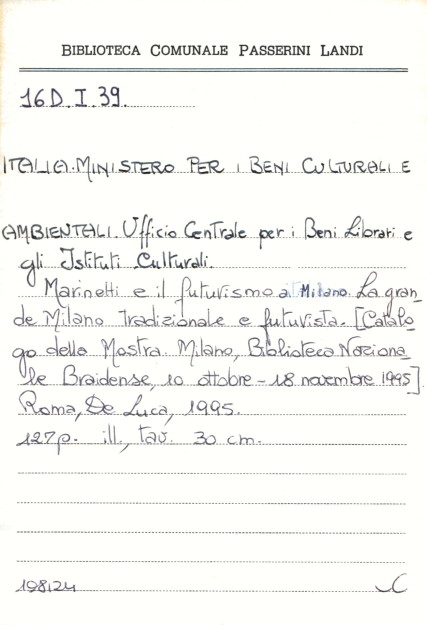 BIBLIOTECA COMUNALE PASSERINI LANDI
16D.I.39.
ITALIA. MINISTERO PER I BENI CULTURALI E
AMBIENTALI. Ufficio Centrale per i Beni Librari e
gli Istituti Culturali.
Marinetti e il futurismo a Milano. La gran
de Milano tradizionale e futurista. [Catalo
go della Mostra. Milano, Biblioteca Naziona
le Braidense, 10 ottobre - 18 novembre 1995]
Roma, De Luca, 1995.
127p. ill., tav. 30 cm.
198124